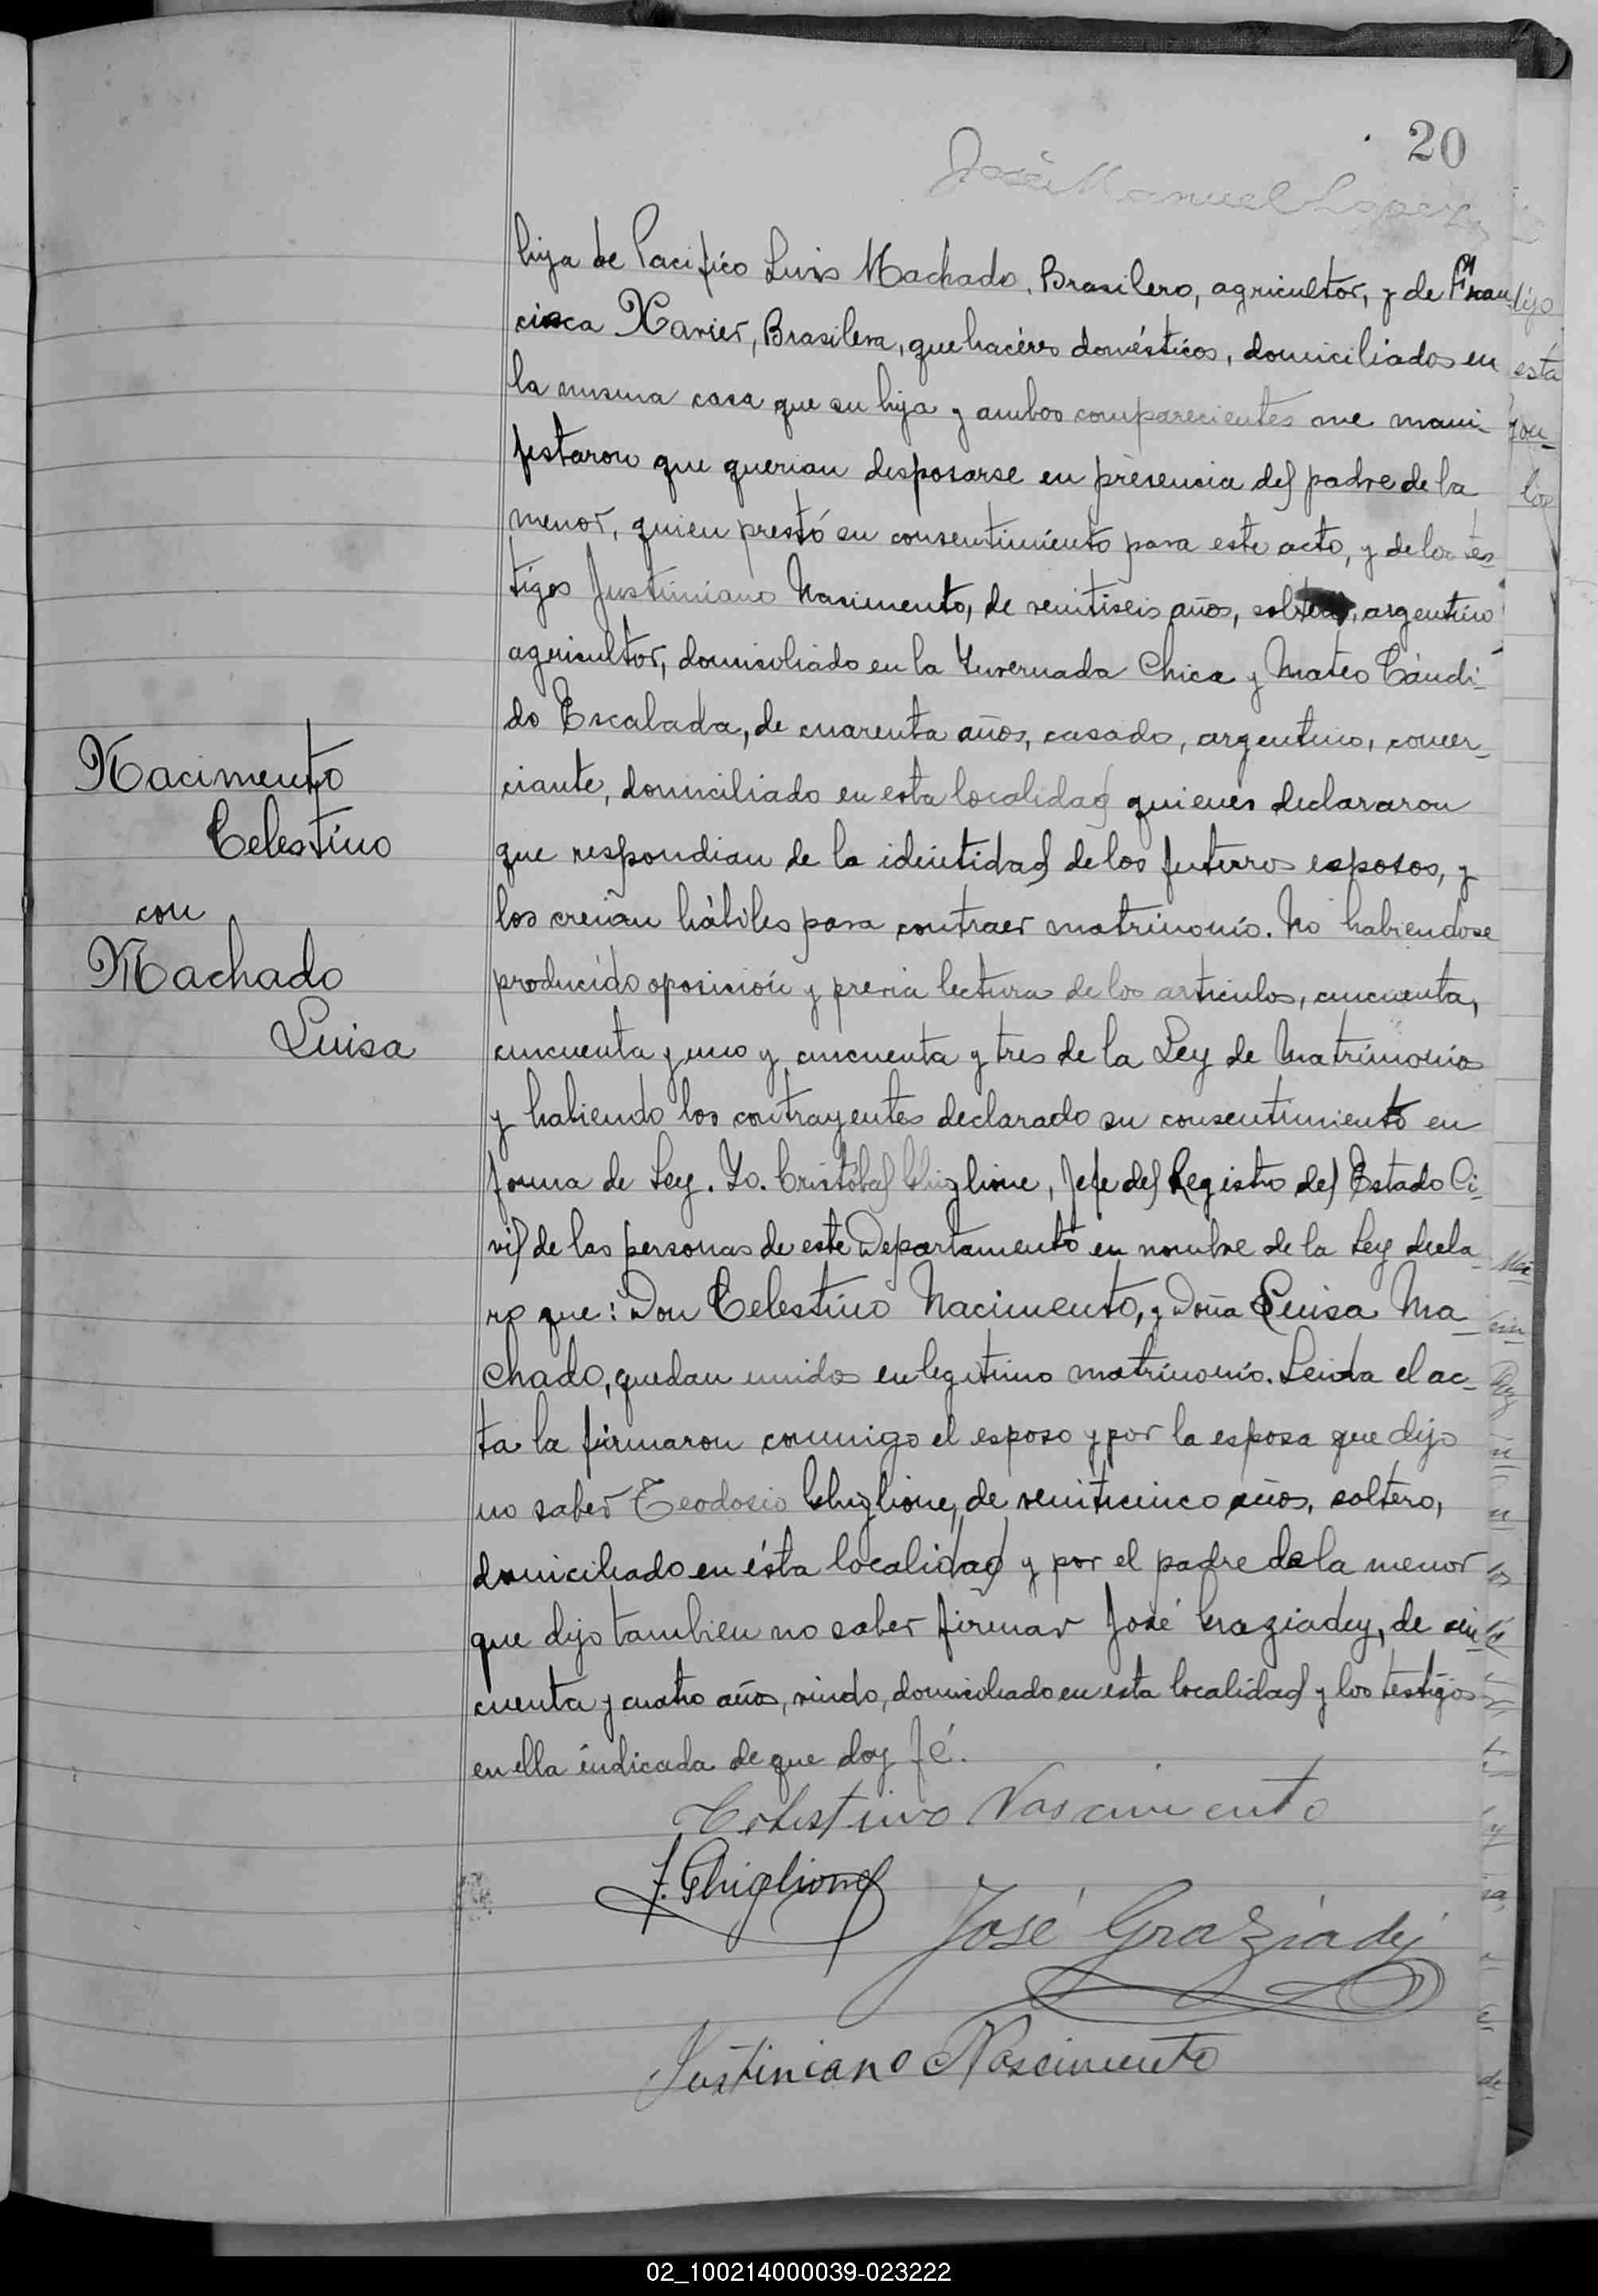 20
José Manuel Lopez
hija de Pacifico Luis Machado, Brasilero, agricultor, y de Fran-
cisca Xavier, Brasilera, quehacéres domésticos, domiciliados en
la misma casa que su hija y ambos comparecientes me mani-
festaron que querian desposarse en presencia del padre de la
menor, quien prestó su consentimiento para este acto, y de los tes-
tigos Justiniano Nasimento, de veintiseis años, soltero, argentino
agricultor, domiciliado en la Yuvernada Chica y Mateo Cándi-
do Escalada, de cuarenta años, casado, argentino, comer-
ciante, domiciliado en esta localidad quienes declararon
que respondian de la identidad de los futuros esposos, y
los creían hábiles para contraer matrimonio. No habiendose
producido oposición y previa lectura de los articulos, cincuenta,
cincuenta y uno y cincuenta y tres de la Ley de Matrimonio
y habiendo los contrayentes declarado su consentimiento en
forma de Ley. Yo. Cristóbal Ghiglione, Jefe del Registro del Estado Ci-
vil de las personas de este Departamento en nombre de la Ley decla-
ro que: Don Celestino Nacimento, y Doña Luisa Ma-
chado, quedan unidos en legitimo matrimonio. Leida el ac-
ta la firmaron conmigo el esposo y por la esposa que dijo
no saber Teodosio Ghiglione, de veinticinco años, soltero,
domiciliado en ésta localidad y por el padre de la menor
que dijo tambien no saber firmar José Graziadey, de cin-
cuenta y cuatro años, viudo, domiciliado en esta localidad y los testigos
en ella indicada de que doy fé.
Nacimento
Celestino
con
Machado
Luisa
Celestino Nascimento
Ghiglione
José Graziadey
Justiniano Nascimento
02_100214000039-023222